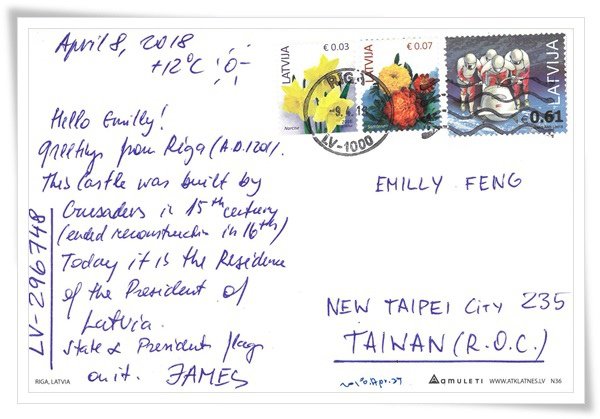 April 8, 2018
+12°C
Hello Emilly!
Greetings from Riga (A.D. 1201).
This Castle was built by
Crusaders in 15th century
(ended reconstruction in 16th)
Today it is the Residence
of the President of
Latvia.
State & Presidents flags
on it. JAMES
LV-296748
RIGA, LATVIA
LATVIJA
€ 0.03
Narcise
LATVIJA
€ 0.07
LATVIJA
€ 0.61
RIGA
LV-1000
EMILLY FENG
NEW TAIPEI CITY 235
TAIWAN (R.O.C.)
AMULETI
WWW.ATKLATNES.LV
N36